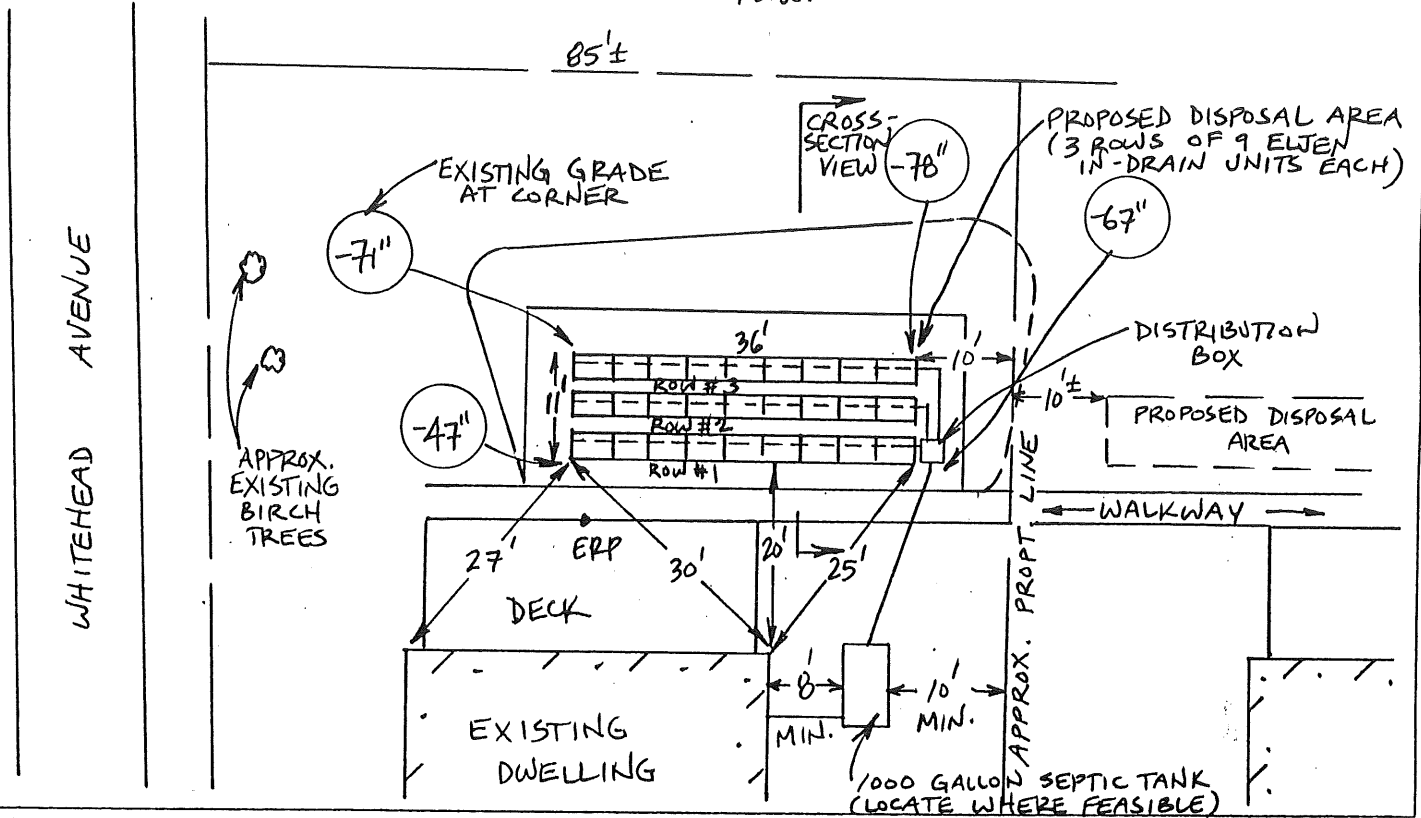 85'±
CROSS-
SECTION
VIEW
-78"
PROPOSED DISPOSAL AREA
(3 ROWS OF 9 ELJEN
IN-DRAIN UNITS EACH)
EXISTING GRADE
AT CORNER
-67"
-71"
WHITEHEAD AVENUE
36'
10'
DISTRIBUTION
BOX
ROW #3
11'
10'±
-47"
ROW #2
PROPOSED DISPOSAL
AREA
ROW #1
APPROX.
EXISTING
BIRCH
TREES
WALKWAY
ERP
27'
30'
20'
25'
DECK
APPROX. PROPT LINE
8'
MIN.
10'
MIN.
EXISTING
DWELLING
1000 GALLON SEPTIC TANK
(LOCATE WHERE FEASIBLE)